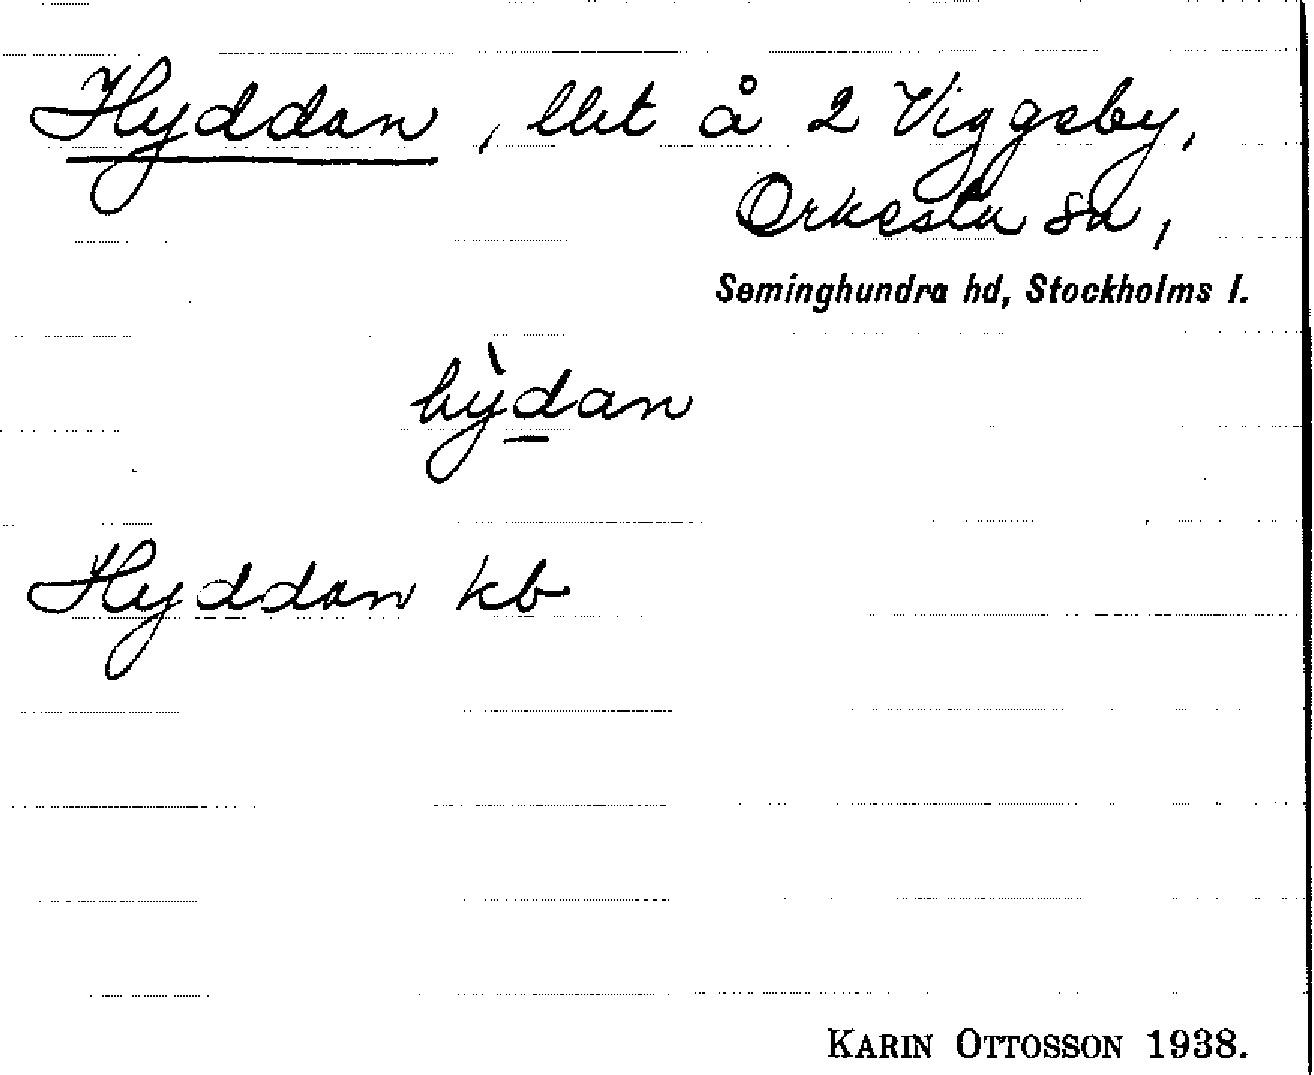 Hyddan, llit å 2 Viggeby,
Orkesta sn,
Seminghundra hd, Stockholms l.
hỳdan
Hyddan kb
KARIN OTTOSSON 1938.